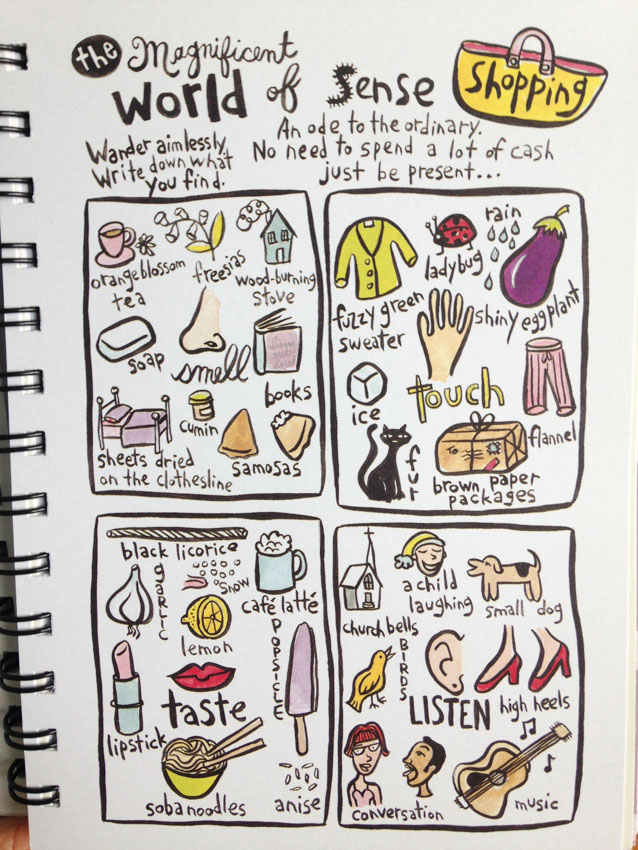 the Magnificent
World of Sense
Shopping
Wander aimlessly,
Write down what
you find.
An ode to the ordinary.
No need to spend a lot of cash
just be present...
orange blossom
tea
freesias
wood-burning
stove
soap
smell
books
sheets dried
on the clothesline
cumin
samosas
fuzzy green
sweater
ladybug
rain
shiny eggplant
ice
touch
fur
brown paper
packages
flannel
black licorice
garlic
snow
café latté
lemon
popsicle
taste
lipstick
soba noodles
anise
church bells
a child
laughing
small dog
birds
LISTEN
high heels
conversation
music